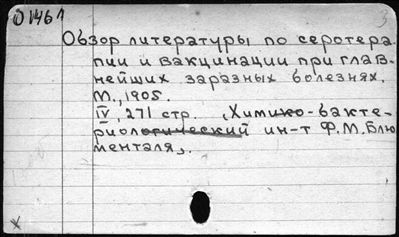 О 1461
Обзор литературы по серотера
пии и вакцинации при глав-
нейших заразных болезнях.
М., 1905.
IV, 271 стр. „Химико-бакте-
риологический ин-т Ф.М.Блю
менталя„.
х